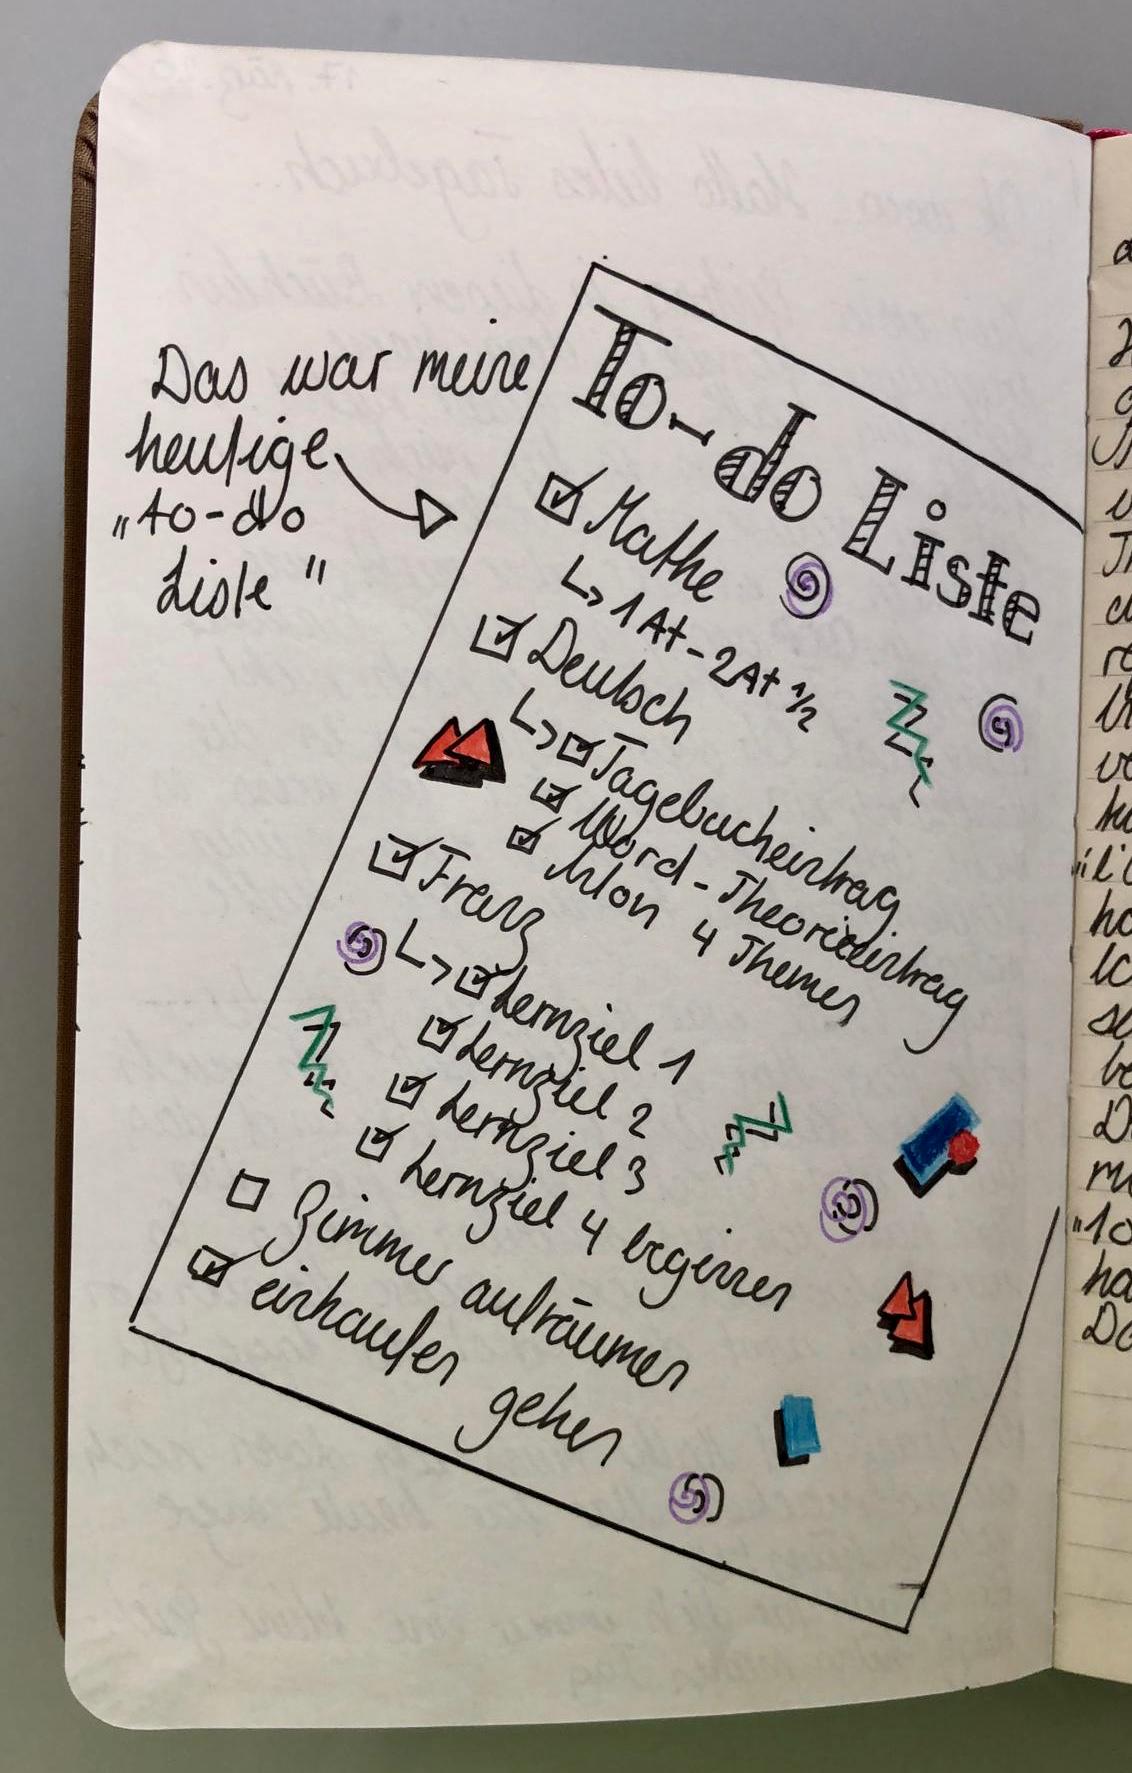 Das war meine
heutige
„to-do
Liste"
To-do Liste
Mathe
↳ 1 At - 2 At 1/2
Deutsch
↳ Tagebucheintrag
Word - Theorieeintrag
4 Themen
Franz
↳ Lernziel 1
Lernziel 2
Lernziel 3
Lernziel 4 beginnen
Zimmer aufräumen
einkaufen
gehen